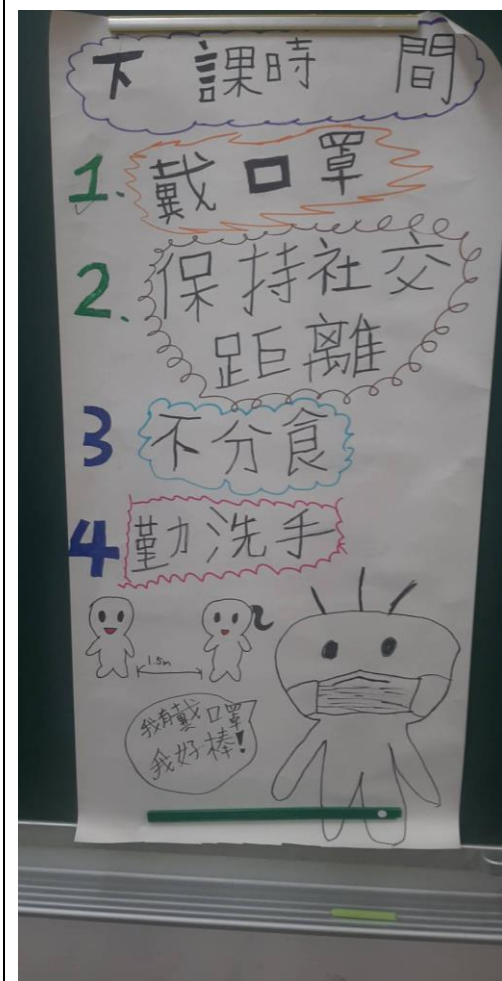 下課時間
1. 戴口罩
2. 保持社交
距離
3 不分食
4 勤洗手
1.5m
我有戴口罩
我好棒!